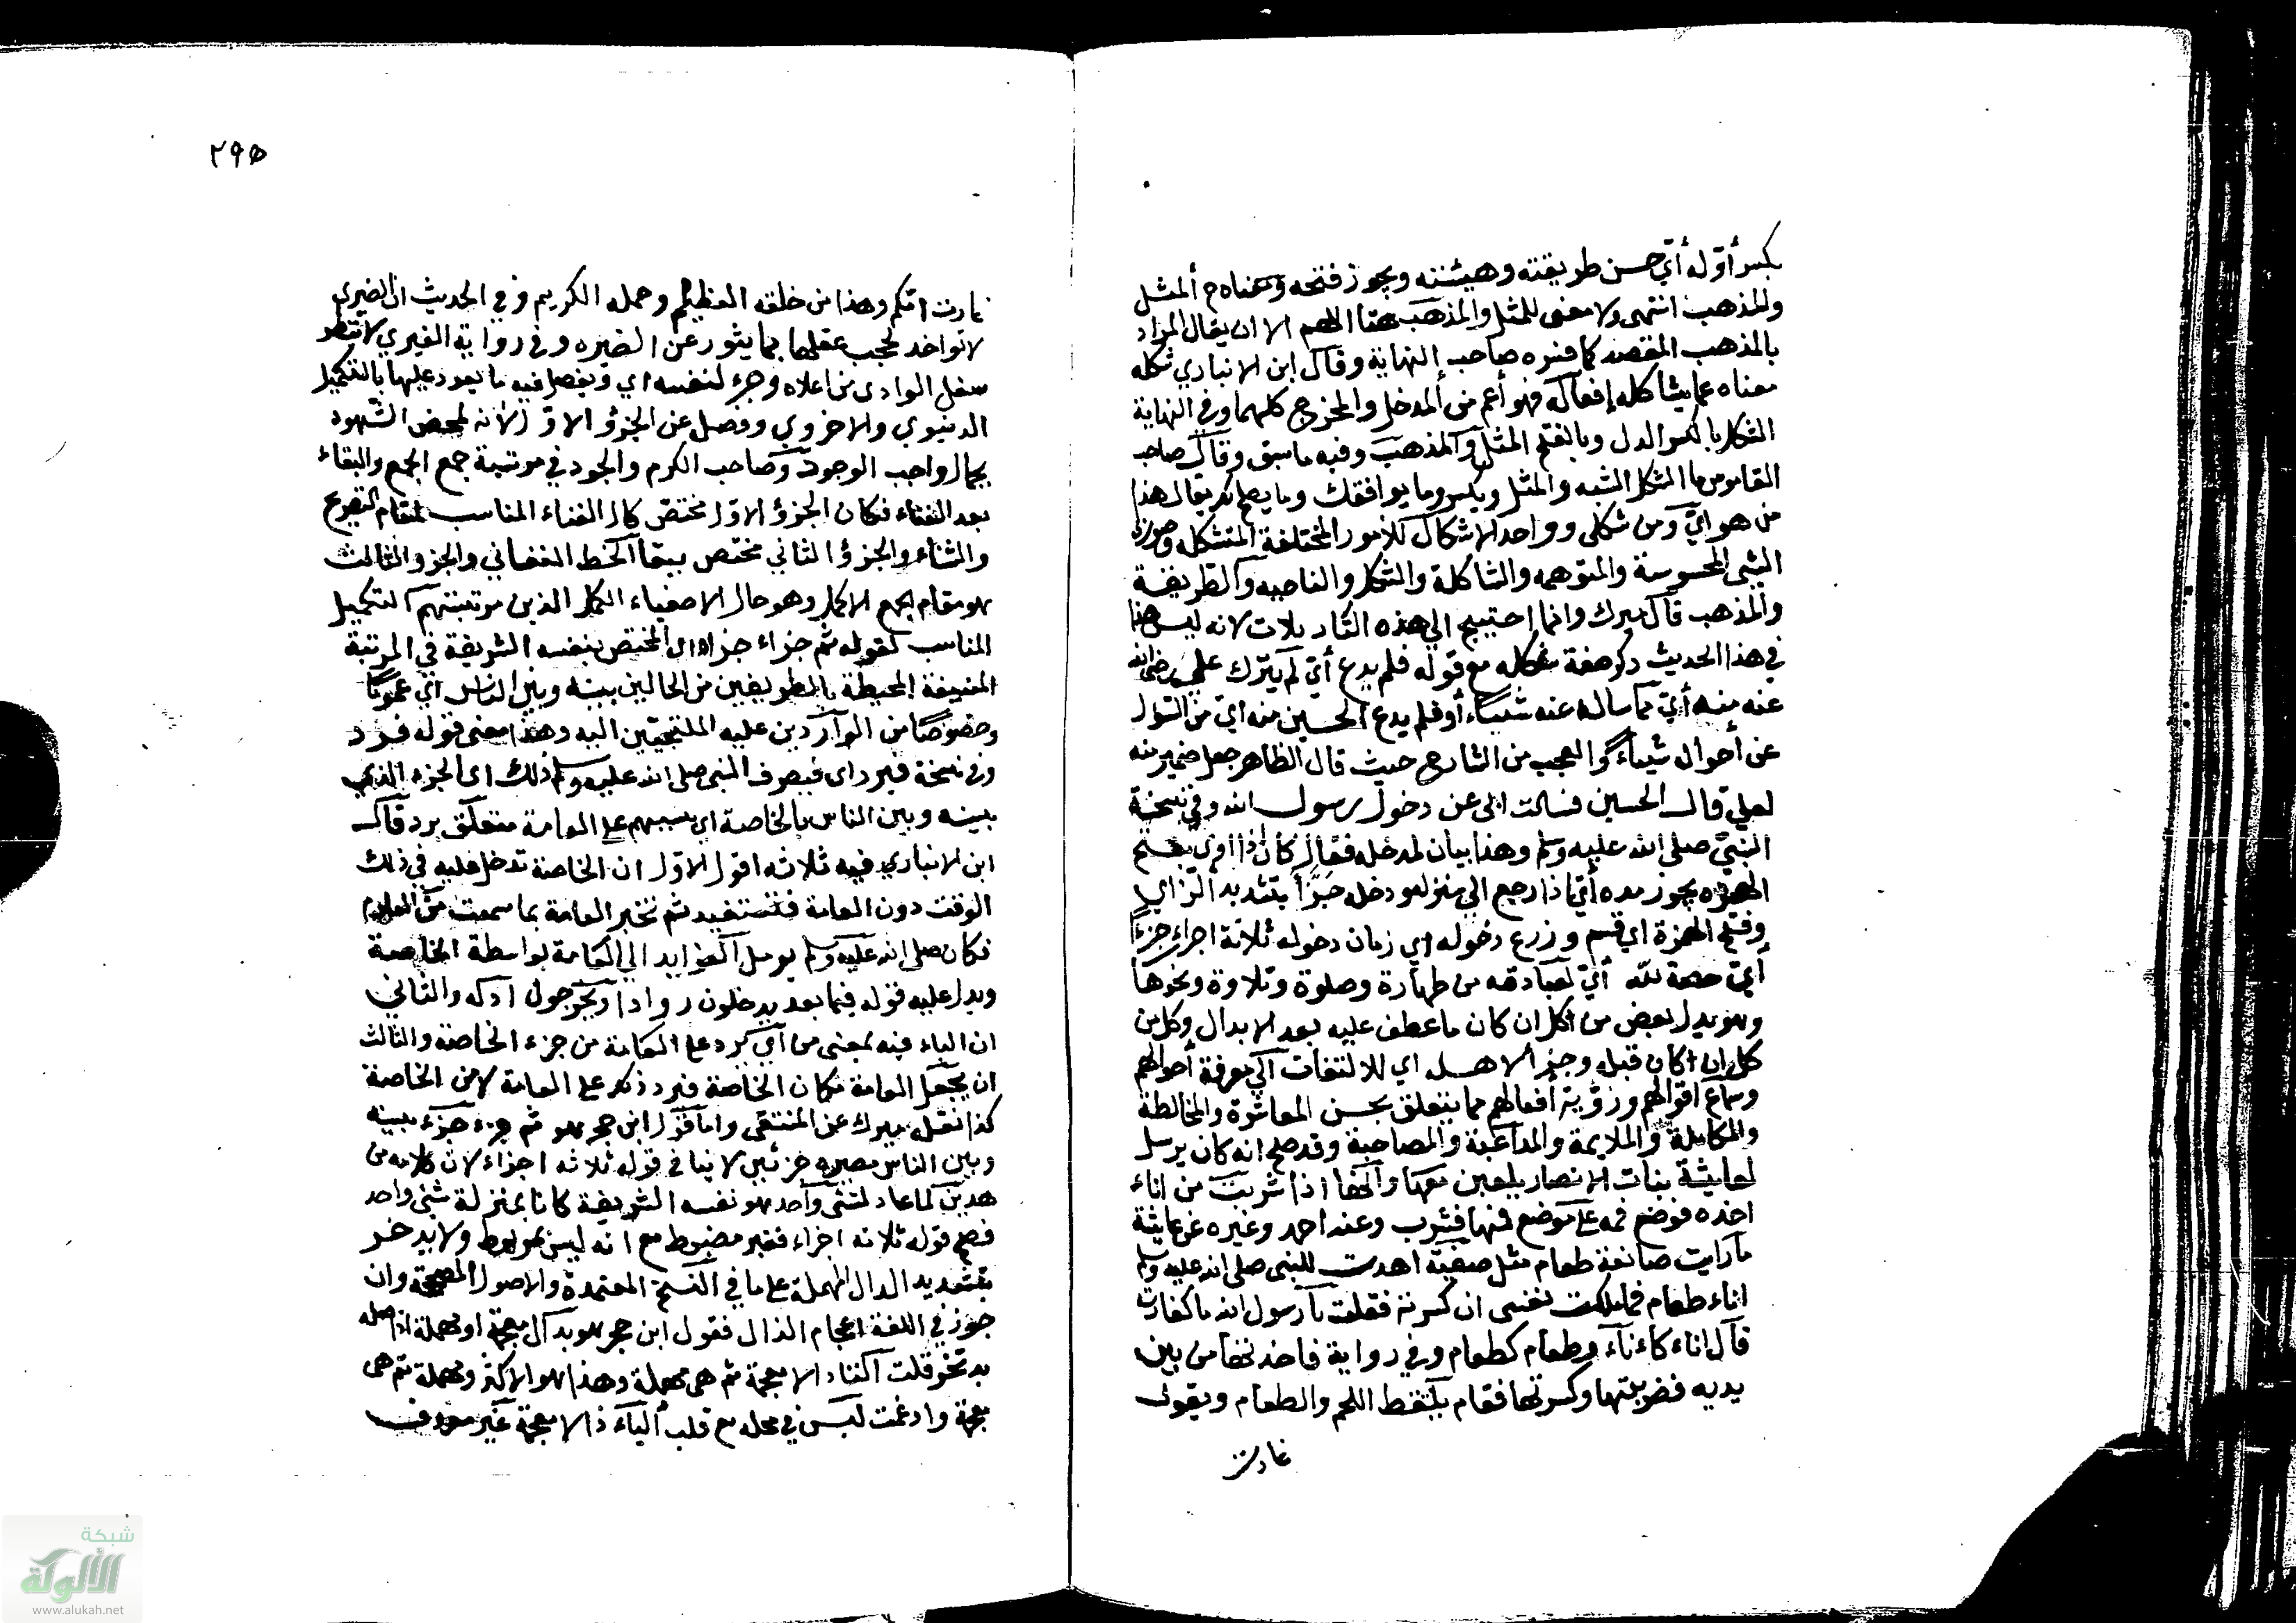 بكسر أوّله أي حسن طريقته وهيئته ويجوز فتحه ومعناه ح المثل
والمذهب انتهى ولا معنى للمثل والمذهب هنا اللهم الا ان يقال المراد
بالمذهب المقصد كما فسره صاحب النهاية وقال ابن الانباري شكله
معناه عما يشاكله إفعاله فهو أعم من المدخل والمخرج كلهما وفي النهاية
الشكل بالكسر الدل وبالفتح المثل والمذهب وفيه ما سبق وقال صاحب
القاموس الشكل الشبه والمثل ويكسر وما يوافقك وما يصلح لك يقال هذا
من هواي ومن شكلي وواحد الاشكال للأمور المختلفة المتشكله وصورة
الشئ المحسوسة والمتوهمه والشاكلة والشكل والناحيه والطريقة
والمذهب قال ميرك وانما احتيج الي هذه التاويلات لانه ليس هنا
في هذا الحديث ذكر صفة شكله مع قوله فلم يدع أي لم يترك علي رضي الله
عنه منه أي مما ساله عنه شيئاً أو فلم يدع الحسين منه اي من السؤال
عن أحواله شيئاً والعجب من الشارح حيث قال الظاهر جعل ضمير منه
لعلي قال الحسين فسالت ابي عن دخول رسول الله وفي نسخة
النبيّ صلى الله عليه وسلم وهذا بيان لمدخله فقال كان اذا اوى بفتح
الهمزه يجوز مده أي اذا رجع الي منزله ودخل جزأ بتشديد الزاي
وفتح الهمزة اي قسم وزرع دخوله اي زمان دخوله ثلاثة اجزاء جزءاً
أي حصة لله أي لعبادته من طهارة وصلوة وتلاوة ونحوها
وهو بدل بعض من الكل ان كان ما عطف عليه بعد الابدال وكل من
كل ان كان قبله وجزأ لاهله اي للالتفات الي معرفة أحوالهم
وسماع اقوالهم ورؤية أفعالهم مما يتعلق بحسن المعاشرة والمخالطة
والمكالمة والملايمة والمداعبة والمصاحبة وقد صح انه كان يرسل
لعايشة بنات الانصار يلعبن معها وانها اذا شربت من اناء
اخذه فوضع فمه على موضع فمها فشرب وعند احمد وغيره عن عايشة
ما رايت صانعة طعام مثل صفية اهدت للنبي صلى الله عليه وسلم
اناء طعام فما ملكت نفسي ان كسرته فقلت يا رسول الله ما كفارته
قال اناء كاناء وطعام كطعام وفي رواية فاخذتها من بين
يديه فضربتها وكسرتها فقام يلتقط اللحم والطعام ويقول
غارت
٢٩٥
غارت امكم وهذا من خلقه العظيم وحمله الكريم وفي الحديث ان الغيرى
لا تواخذ لحجب عقلها بما يثور عن الغيره وفي رواية الغيري لا تنظر
سفل الوادى من اعلاه وجزء لنفسه اي ويفصل فيه ما يعود عليها بالتكميل
الدنيوي والاخروي وفصل عن الجزؤ الاول لانه لمحض الشهود
بجمال واجب الوجود وصاحب الكرم والجود في مرتبة جمع الجمع والبقاء
بعد الفناء فكان الجزؤ الاول مختص كال الفناء المناسب لمقام التضرع
والثناء والجزؤ الثاني مختص ببقاء الخط النفساني والجزو الثالث
هو مقام الجمع الاكمل وهو حال الاصفياء الكمل الذين مرتبتهم التكميل
المناسب لقوله ثم جزاء جزاه اى المختص بنفسه الشريفة في المرتبة
المنيفة المحيطة بالطريفين من الحالين بينه وبين الناس اي عموماً
وخصوصاً من الواردين عليه الملتجئين اليه وهذا معنى قوله فرد
وفي نسخة فيرد اى فيصرف النبي صلى الله عليه وسلم ذلك اى الجزء الذي
بينه وبين الناس بالخاصة اي بسببهم على العامة متعلق برد قال
ابن الانباري فيه ثلاثه اقوال الاوّل ان الخاصة تدخل عليه في ذلك
الوقت دون العامة فتستفيد ثم تخبر العامة بما سمعت من العلوم
فكان صلى الله عليه وسلم يوصل الفوايد الي العامة بواسطة الخاصة
ويدل عليه قوله فيما بعد يدخلون روادا ويخرجون ادلة والثاني
ان الباء فيه بمعنى من أي يرد على العامة من جزء الخاصة والثالث
ان يجعل العامة مكان الخاصة فيرد ذلك على العامة لا من الخاصة
كذا نقل ميرك عن المنتقى واما قول ابن حجر هو ثم جزء جزءه بينه
وبين الناس مصيره جزئين لا ينافي قوله ثلاثه اجزاء لان كلا من
هذين لما عاد لشئ واحد هو نفسه الشريفة كانا بمنزلة شئ واحد
فصح قوله ثلاثه اجزاء فغير مضبوط مع انه ليس بمربوط ولا يدخر
بتشديد الدال المهملة على ما في النسخ المعتمدة والاصول المصححة وان
جوز في اللغة اعجام الذال فقول ابن حجر هو بدال معجمة او مهملة اذ اصله
يدتخر قلت التاء دالا معجمة ثم هى مهملة وهذا هو الاكثر ومهملة ثم هى
معجمة وادغمت ليس في محله مع قلب التاء ذالا معجمة غير معروف
شبكة
الألوكة
www.alukah.net